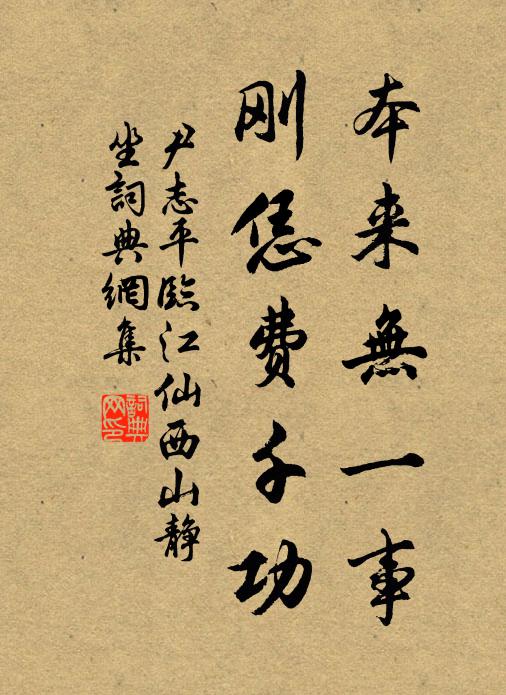 本来無一事
刚恁費千功
尹志平臨江仙西山静
坐詞典網集
詞典
网印